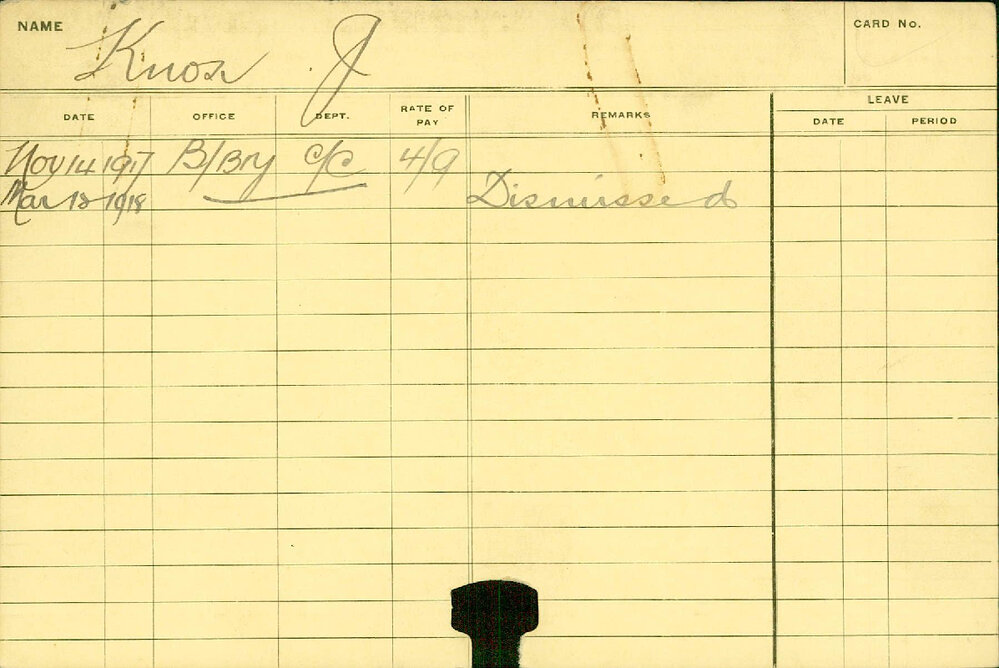 NAME Knox J CARD No.
LEAVE
DATE OFFICE DEPT. RATE OF PAY REMARKS DATE PERIOD
Nov 14 1917 B/Bry C/C 4/9
Mar 12 1918 Dismissed